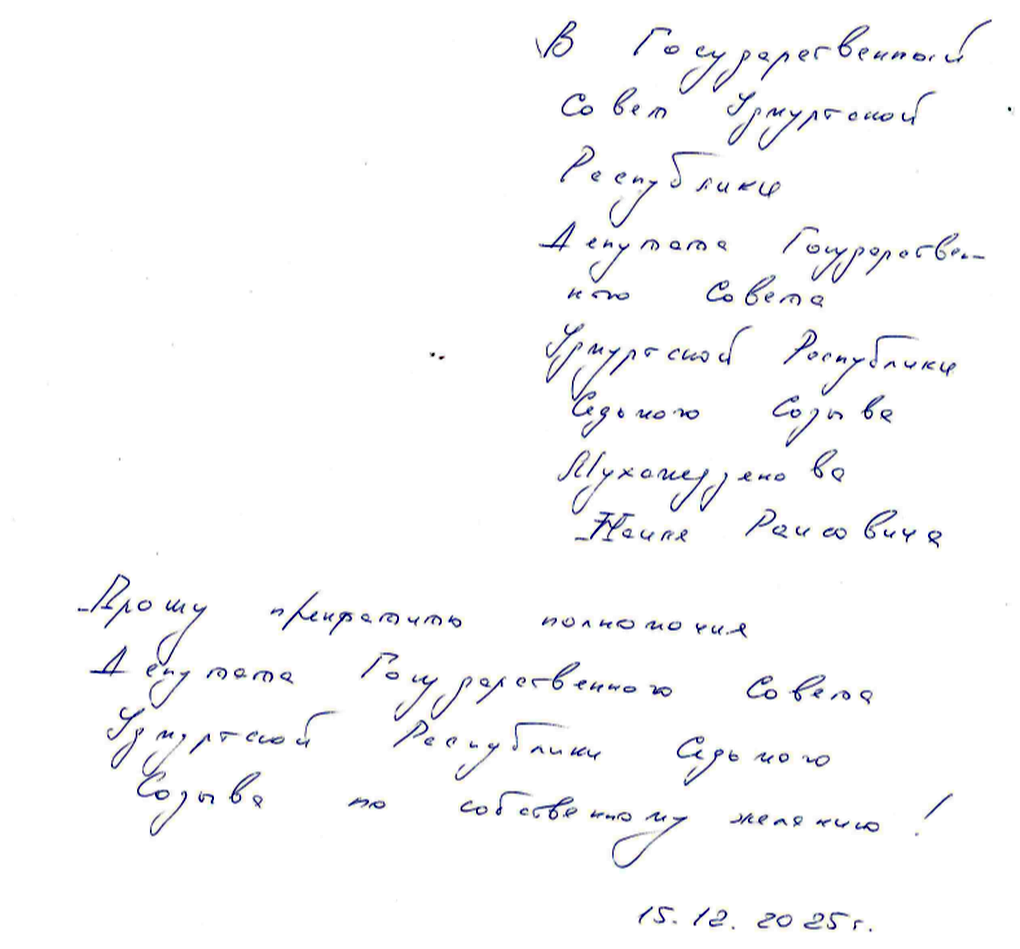 В Государственный
Совет Удмуртской
Республики
Депутата Государствен-
ного Совета
Удмуртской Республики
Седьмого Созыва
Мухамедзянова
Наиля Раисовича
Прошу прекратить полномочия
Депутата Государственного Совета
Удмуртской Республики Седьмого
Созыва по собственному желанию!
15.12.2025г.